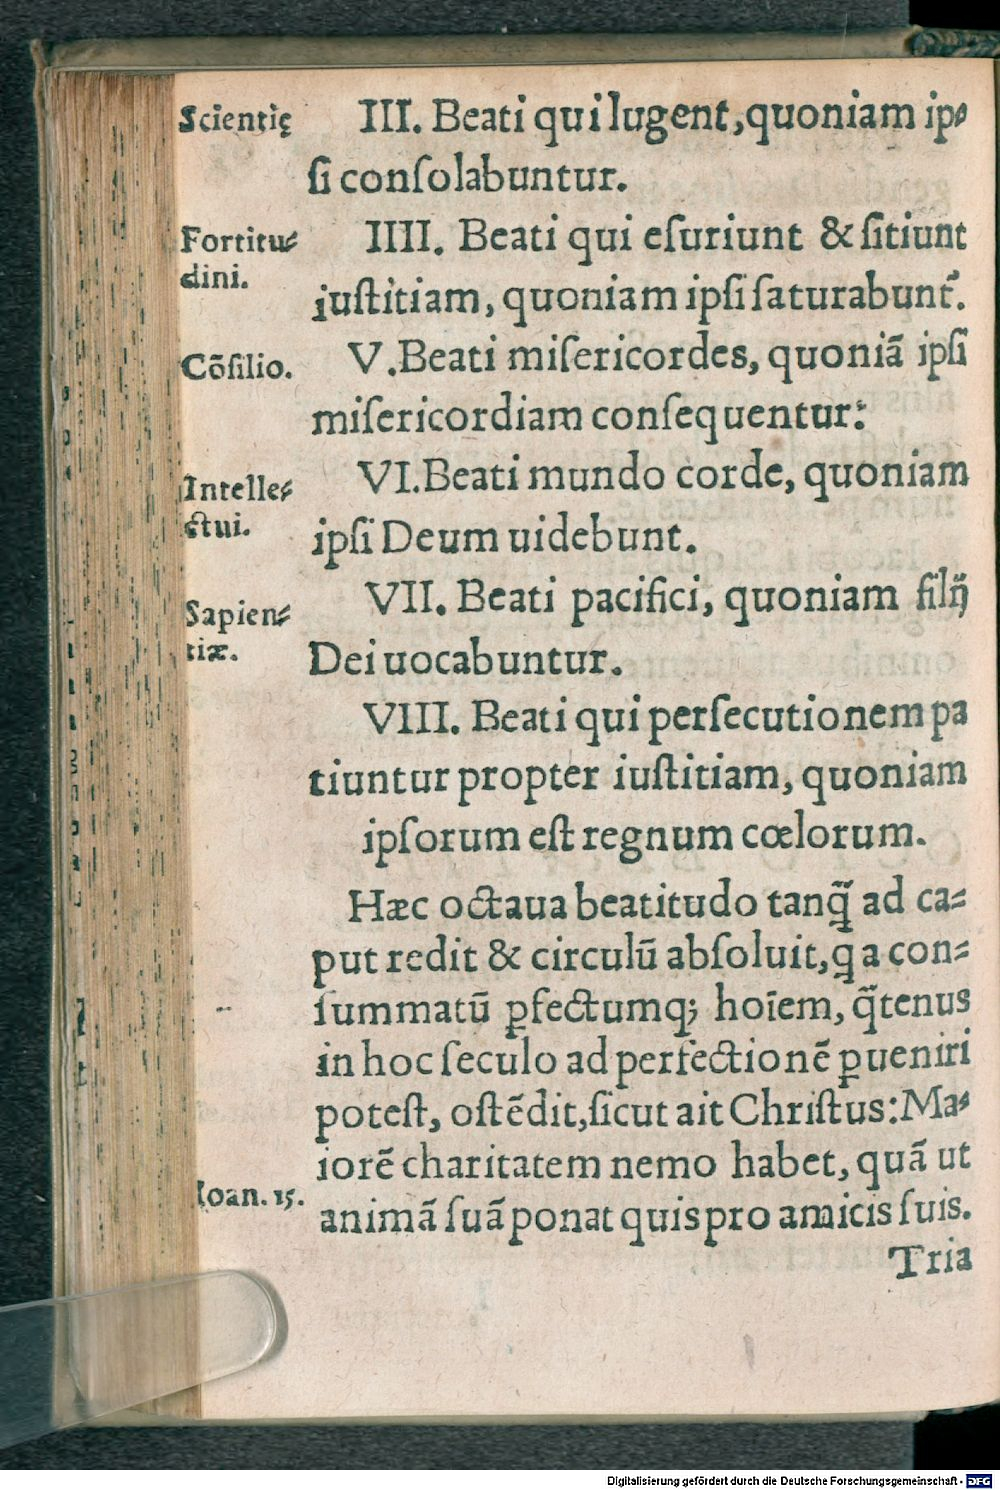 Scientię
III. Beati qui lugent, quoniam ip⸗
ſi conſolabuntur.
Fortitu⸗
dini.
IIII. Beati qui eſuriunt & ſitiunt
iuſtitiam, quoniam ipſi ſaturabunt᷑.
Cõſilio.
V. Beati miſericordes, quoniã ipſi
miſericordiam conſequentur:
Intelle⸗
ctui.
VI. Beati mundo corde, quoniam
ipſi Deum uidebunt.
Sapien⸗
tiæ.
VII. Beati pacifici, quoniam filij
Dei uocabuntur.
VIII. Beati qui perſecutionem pa
tiuntur propter iuſtitiam, quoniam
ipſorum eſt regnum cœlorum.
Hæc octaua beatitudo tanq̃ ad ca⸗
put redit & circulũ abſoluit, q a con⸗
ſummatũ ꝑfectumq; hoĩem, q̃tenus
in hoc ſeculo ad perfectionẽ ꝑueniri
poteſt, oſtẽdit, ſicut ait Chriſtus: Ma⸗
iorẽ charitatem nemo habet, quã ut
Ioan. 15.
animã ſuã ponat quis pro amicis ſuis.
Tria
Digitalisierung gefördert durch die Deutsche Forschungsgemeinschaft - DFG